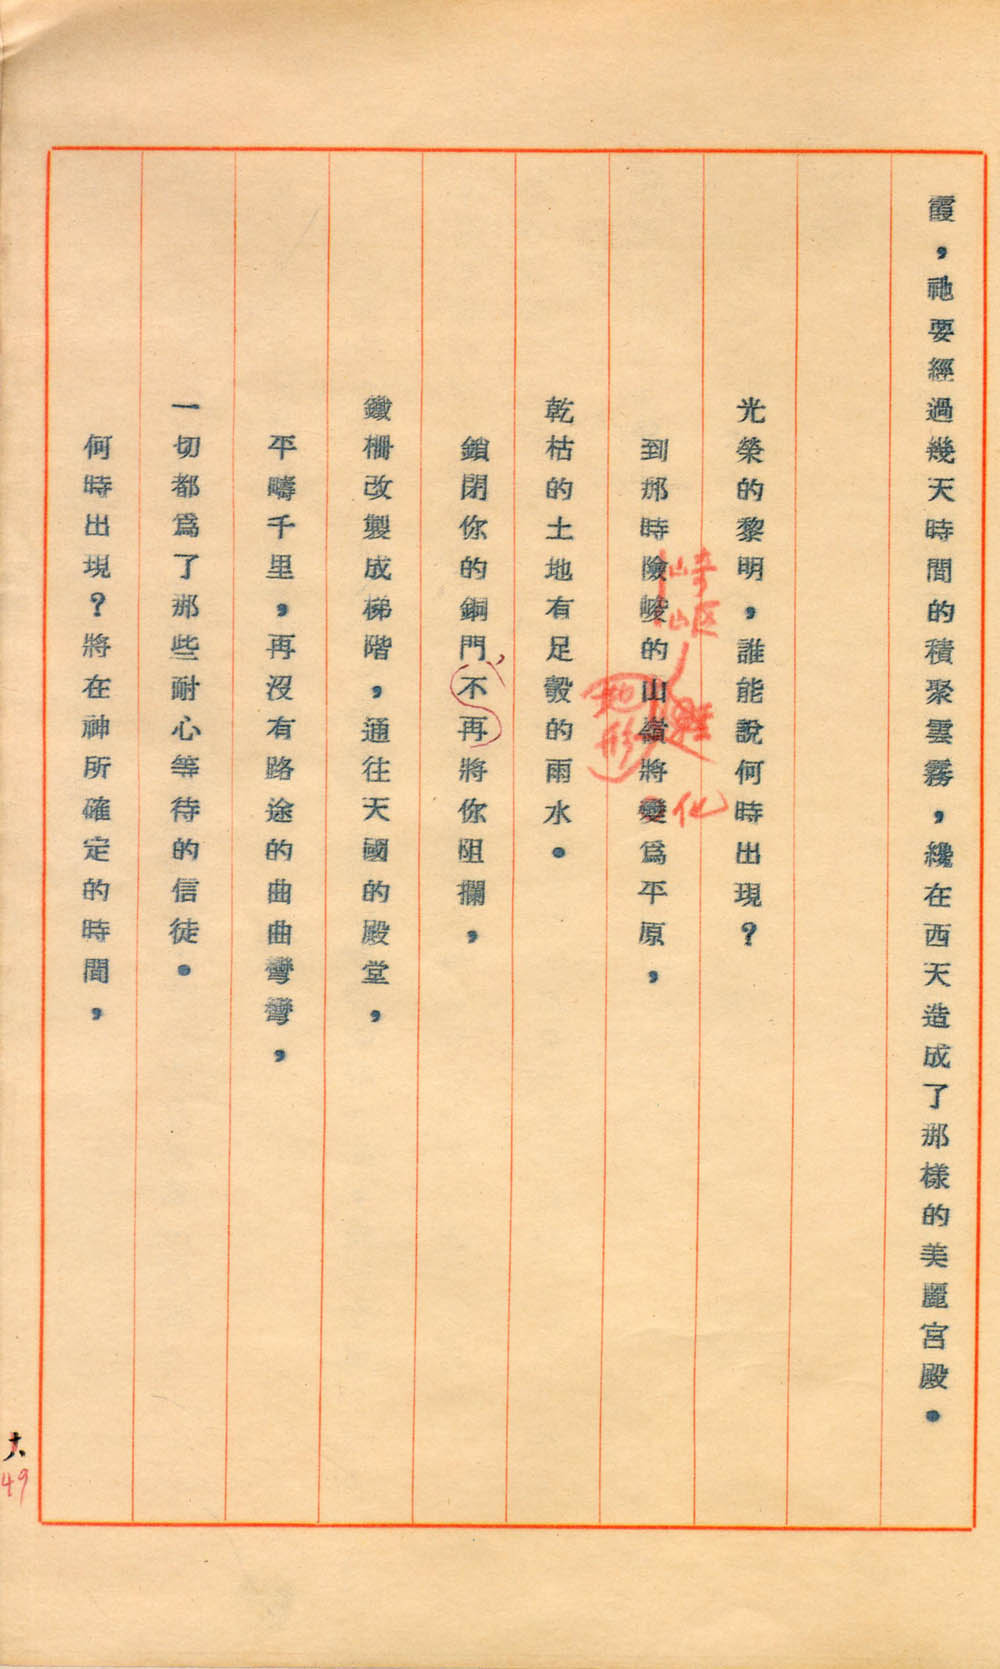 霞，祂要經過幾天時間的積聚雲霧，纔在西天造成了那樣的美麗宮殿。
光榮的黎明，誰能說何時出現？
到那時險峻的山嶺將變爲平原，
崎嶇
地形
化
乾枯的土地有足彀的雨水。
鎖閉你的銅門不再將你阻攔，
鐵柵改製成梯階，通往天國的殿堂，
平疇千里，再沒有路途的曲曲彎彎，
一切都爲了那些耐心等待的信徒。
何時出現？將在神所確定的時間，
十八
49